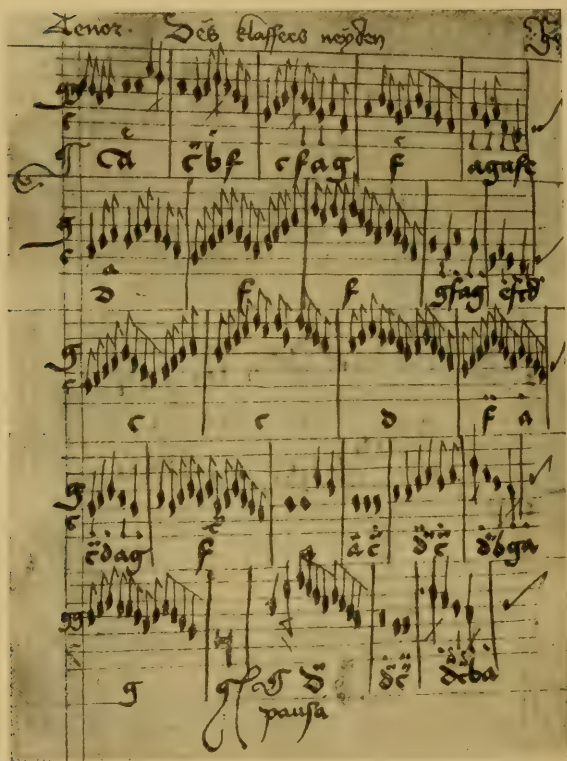 Tenor. Des klaffers neyden
g
c
c a c b f c f a g f a g a f e
g
c
d f f g f a g e f e d
g
c
c c d f a
g
c
c d a g f a c d c d b g a
gg
g g g d d c d c b a
pausa